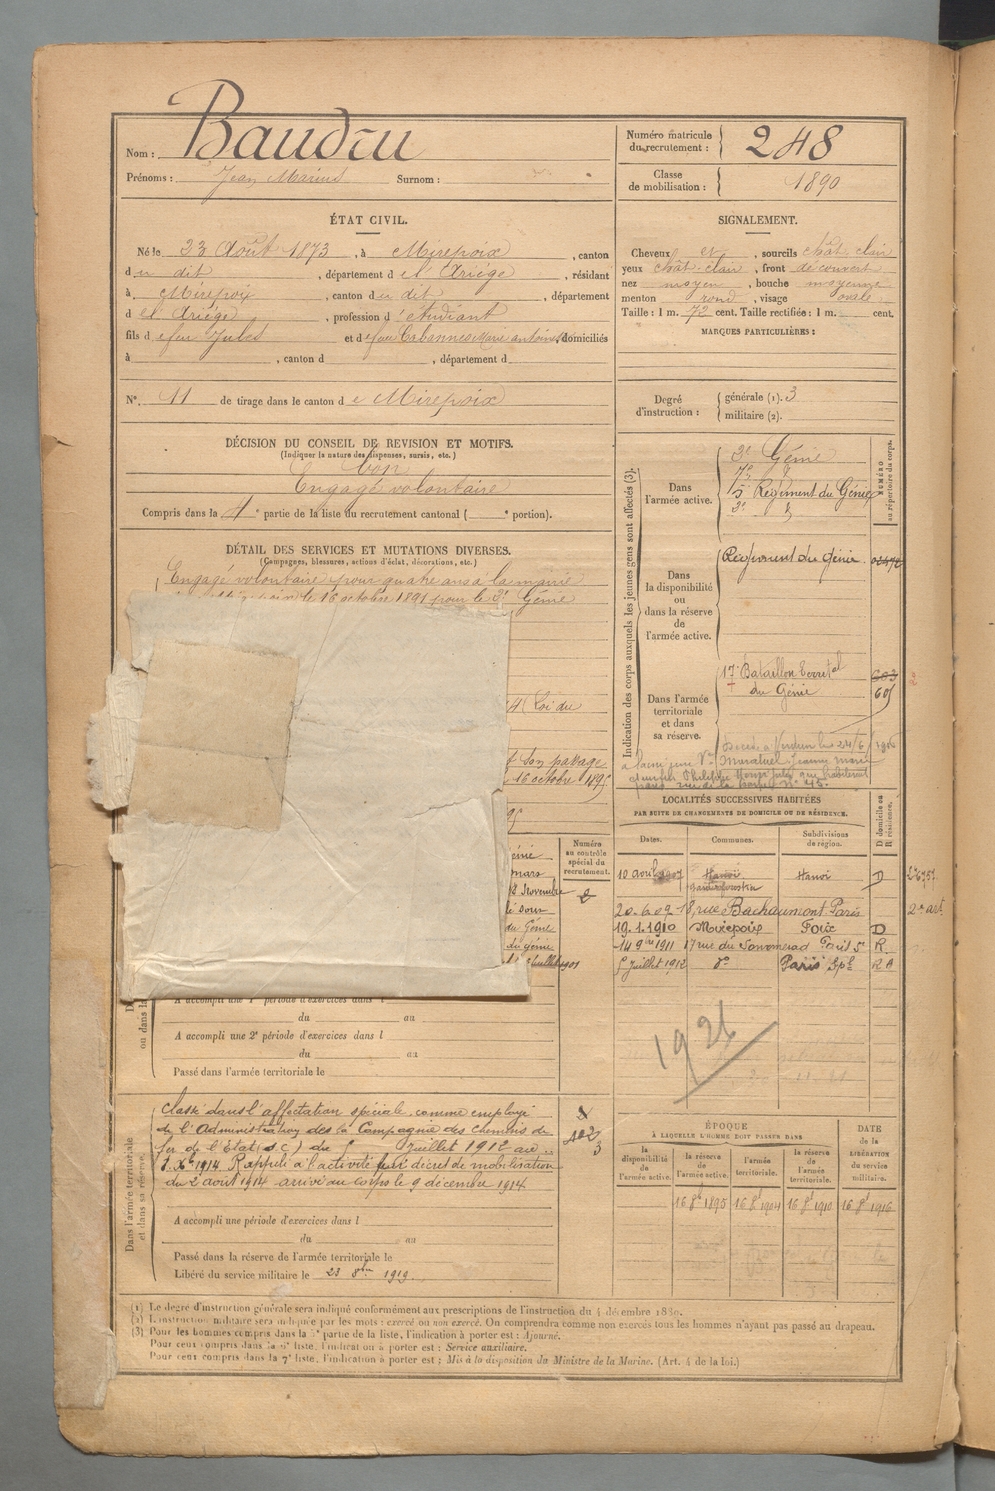 Nom : Baudru
Prénoms : Jean Marius Surnom :
Numéro matricule du recrutement : 248
Classe de mobilisation : 1890
ÉTAT CIVIL.
Né le 23 Août 1873, à Mirepoix, canton
du dit, département de l'Ariège, résidant
à Mirepoix, canton du dit, département
de l'Ariège, profession d'étudiant
fils de feu Jules et de feue Cabannes Marie antoinette domiciliés
à , canton d , département d
N° 11 de tirage dans le canton de Mirepoix
SIGNALEMENT.
Cheveux et , sourcils chât. clair
yeux chât. clair, front découvert
nez moyen, bouche moyenne
menton rond, visage ovale
Taille : 1 m. 72 cent. Taille rectifiée : 1 m. cent.
MARQUES PARTICULIÈRES :
Degré d'instruction : générale (1). 3
militaire (2).
DÉCISION DU CONSEIL DE REVISION ET MOTIFS.
(Indiquer la nature des dispenses, sursis, etc.)
bon
Engagé volontaire
Compris dans la 4e partie de la liste du recrutement cantonal ( e portion).
DÉTAIL DES SERVICES ET MUTATIONS DIVERSES.
(Campagnes, blessures, actions d'éclat, décorations, etc.)
Engagé volontaire pour quatre ans à la mairie
le 16 octobre 1891 pour le 3e Génie
Loi du
son passage
16 octobre 1895
Génie
mars
Novembre
du Génie
du génie
Juillet 1901
Numéro au contrôle spécial du recrutement.
Indication des corps auxquels les jeunes gens sont affectés (3).
NUMÉRO au répertoire du corps.
Dans l'armée active.
3e Génie
7e
5 Régiment du Génie
3e
Dans la disponibilité ou dans la réserve de l'armée active.
Régiment du Génie
Dans l'armée territoriale et dans sa réserve.
17e Bataillon Territal
du Génie
603
605
Décédé à Verdun le 24/6/1916
LOCALITÉS SUCCESSIVES HABITÉES
PAR SUITE DE CHANGEMENTS DE DOMICILE OU DE RÉSIDENCE.
Dates. Communes. Subdivisions de région. D domicile ou R résidence.
10 avril 1907 Hanoï Hanoï D
20.6.09 18, rue Bachaumont Paris
19.1.1910 Mirepoix Foix D
14 9bre 1911 17 rue du Sommerad Paris 5e R
5 Juillet 1912 d° Paris Spl R A
1924
A accompli une 1e période d'exercices dans l
du au
A accompli une 2e période d'exercices dans l
du au
Passé dans l'armée territoriale le
Dans l'armée territoriale et dans sa réserve.
Classé dans l'affectation spéciale comme employé
de l'Administration des la Compagnie des chemins de
fer de l'État (S C) du 5 Juillet 1912 au
3 Xbre 1914. Rappelé à l'activité par décret de mobilisation
du 2 août 1914 arrivé au corps le 9 décembre 1914.
A accompli une période d'exercices dans l
du au
Passé dans la réserve de l'armée territoriale le
Libéré du service militaire le 23 8bre 1919.
ÉPOQUE
À LAQUELLE L'HOMME DOIT PASSER DANS
la disponibilité de l'armée active. la réserve de l'armée active. l'armée territoriale. la réserve de l'armée territoriale.
DATE de la LIBÉRATION du service militaire.
16 8bre 1895 16 8bre 1904 16 8bre 1910 16 8bre 1916
(1) Le degré d'instruction générale sera indiqué conformément aux prescriptions de l'instruction du 4 décembre 1889.
(2) L'instruction militaire sera indiquée par les mots : exercé ou non exercé. On comprendra comme non exercés tous les hommes n'ayant pas passé au drapeau.
(3) Pour les hommes compris dans la 5e partie de la liste, l'indication à porter est : Ajourné.
Pour ceux compris dans la 6e liste, l'indication à porter est : Service auxiliaire.
Pour ceux compris dans la 7e liste, l'indication à porter est : Mis à la disposition du Ministre de la Marine. (Art. 4 de la loi.)